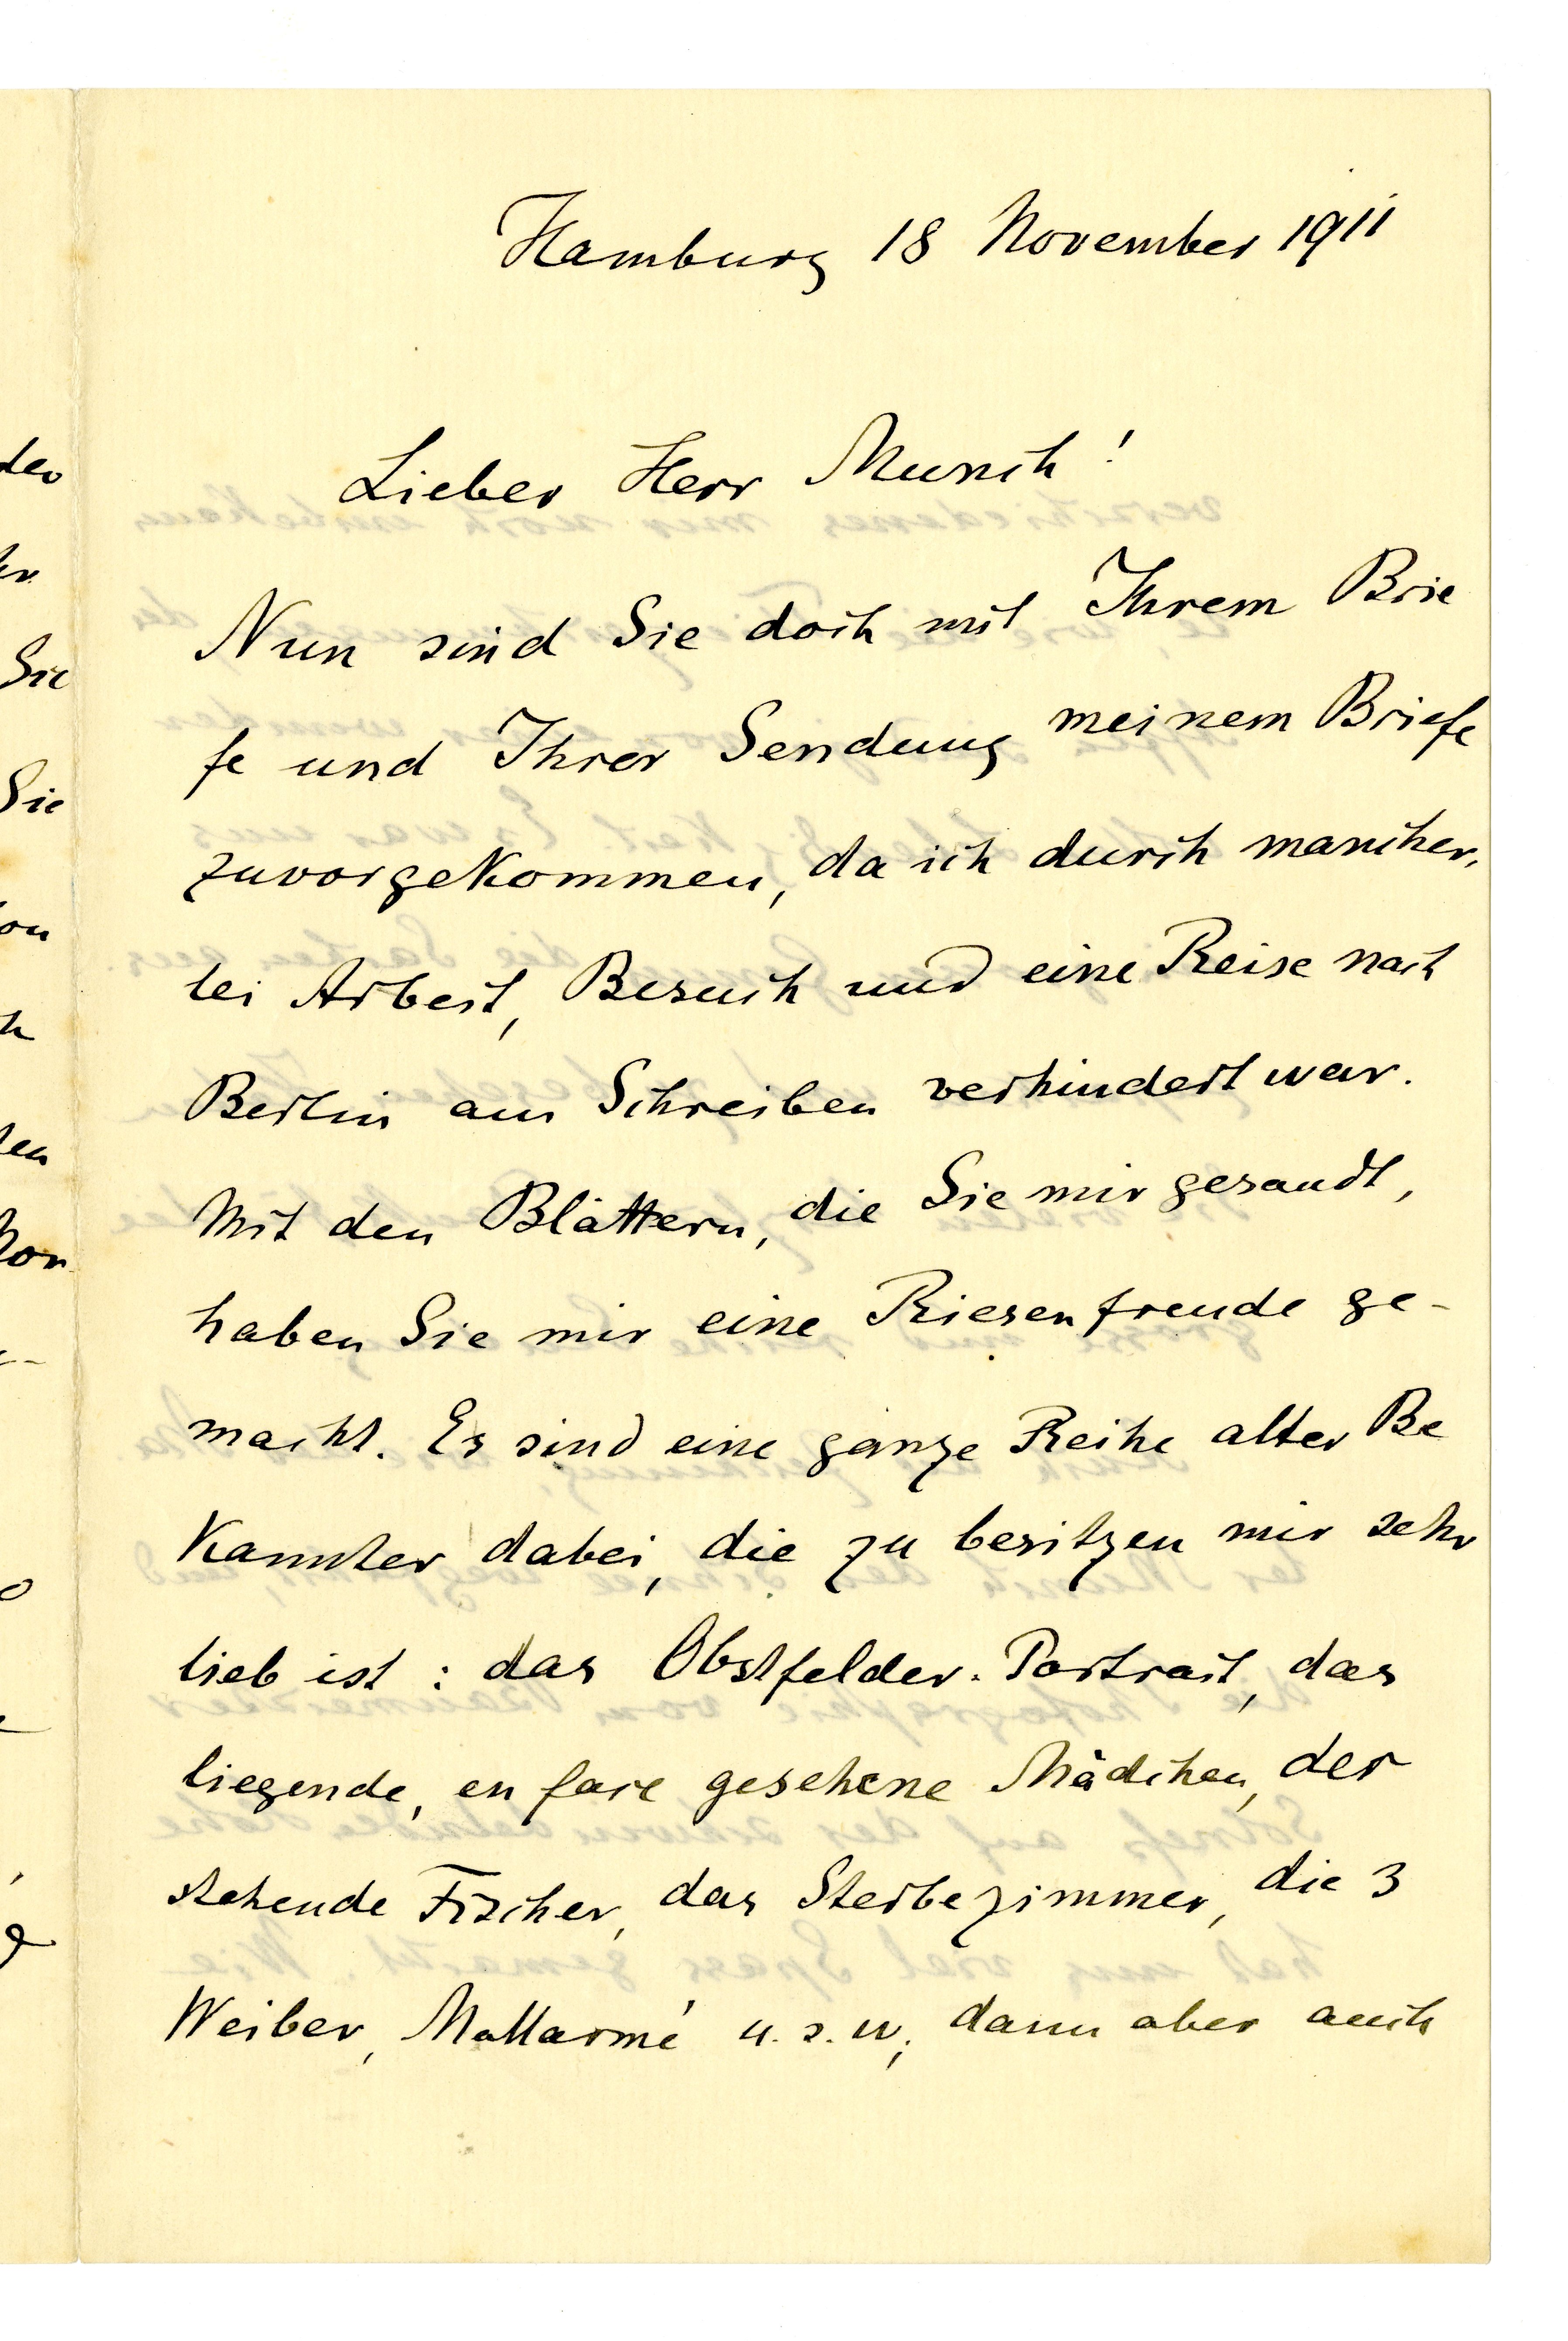 Hamburg 18 November 1911
Lieber Herr Munch!
Nun sind Sie doch mit Ihrem Brie
fe und Ihrer Sendung meinem Briefe
zuvorgekommen, da ich durch mancher-
lei Arbeit, Besuch und eine Reise nach
Berlin am Schreiben verhindert war.
Mit den Blättern, die Sie mir gesandt,
haben Sie mir eine Riesenfreude ge-
macht. Es sind eine ganze Reihe alter Be
kannter dabei, die zu besitzen mir sehr
lieb ist: das Obstfelder-Portrait, das
liegende, en face gesehene Mädchen, der
stehende Fischer, das Sterbezimmer, die 3
Weiber, Mallarmé u.s.w; dann aber auch